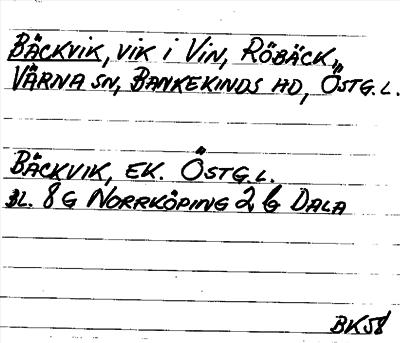 BÄCKVIK, VIK I VIN, RÖBÄCK,
VÄRNA SN, BANKEKINDS HD, ÖSTG.L.
BÄCKVIK, EK. ÖSTG.L.
BL. 8G NORRKÖPING 2 b DALA
BK58